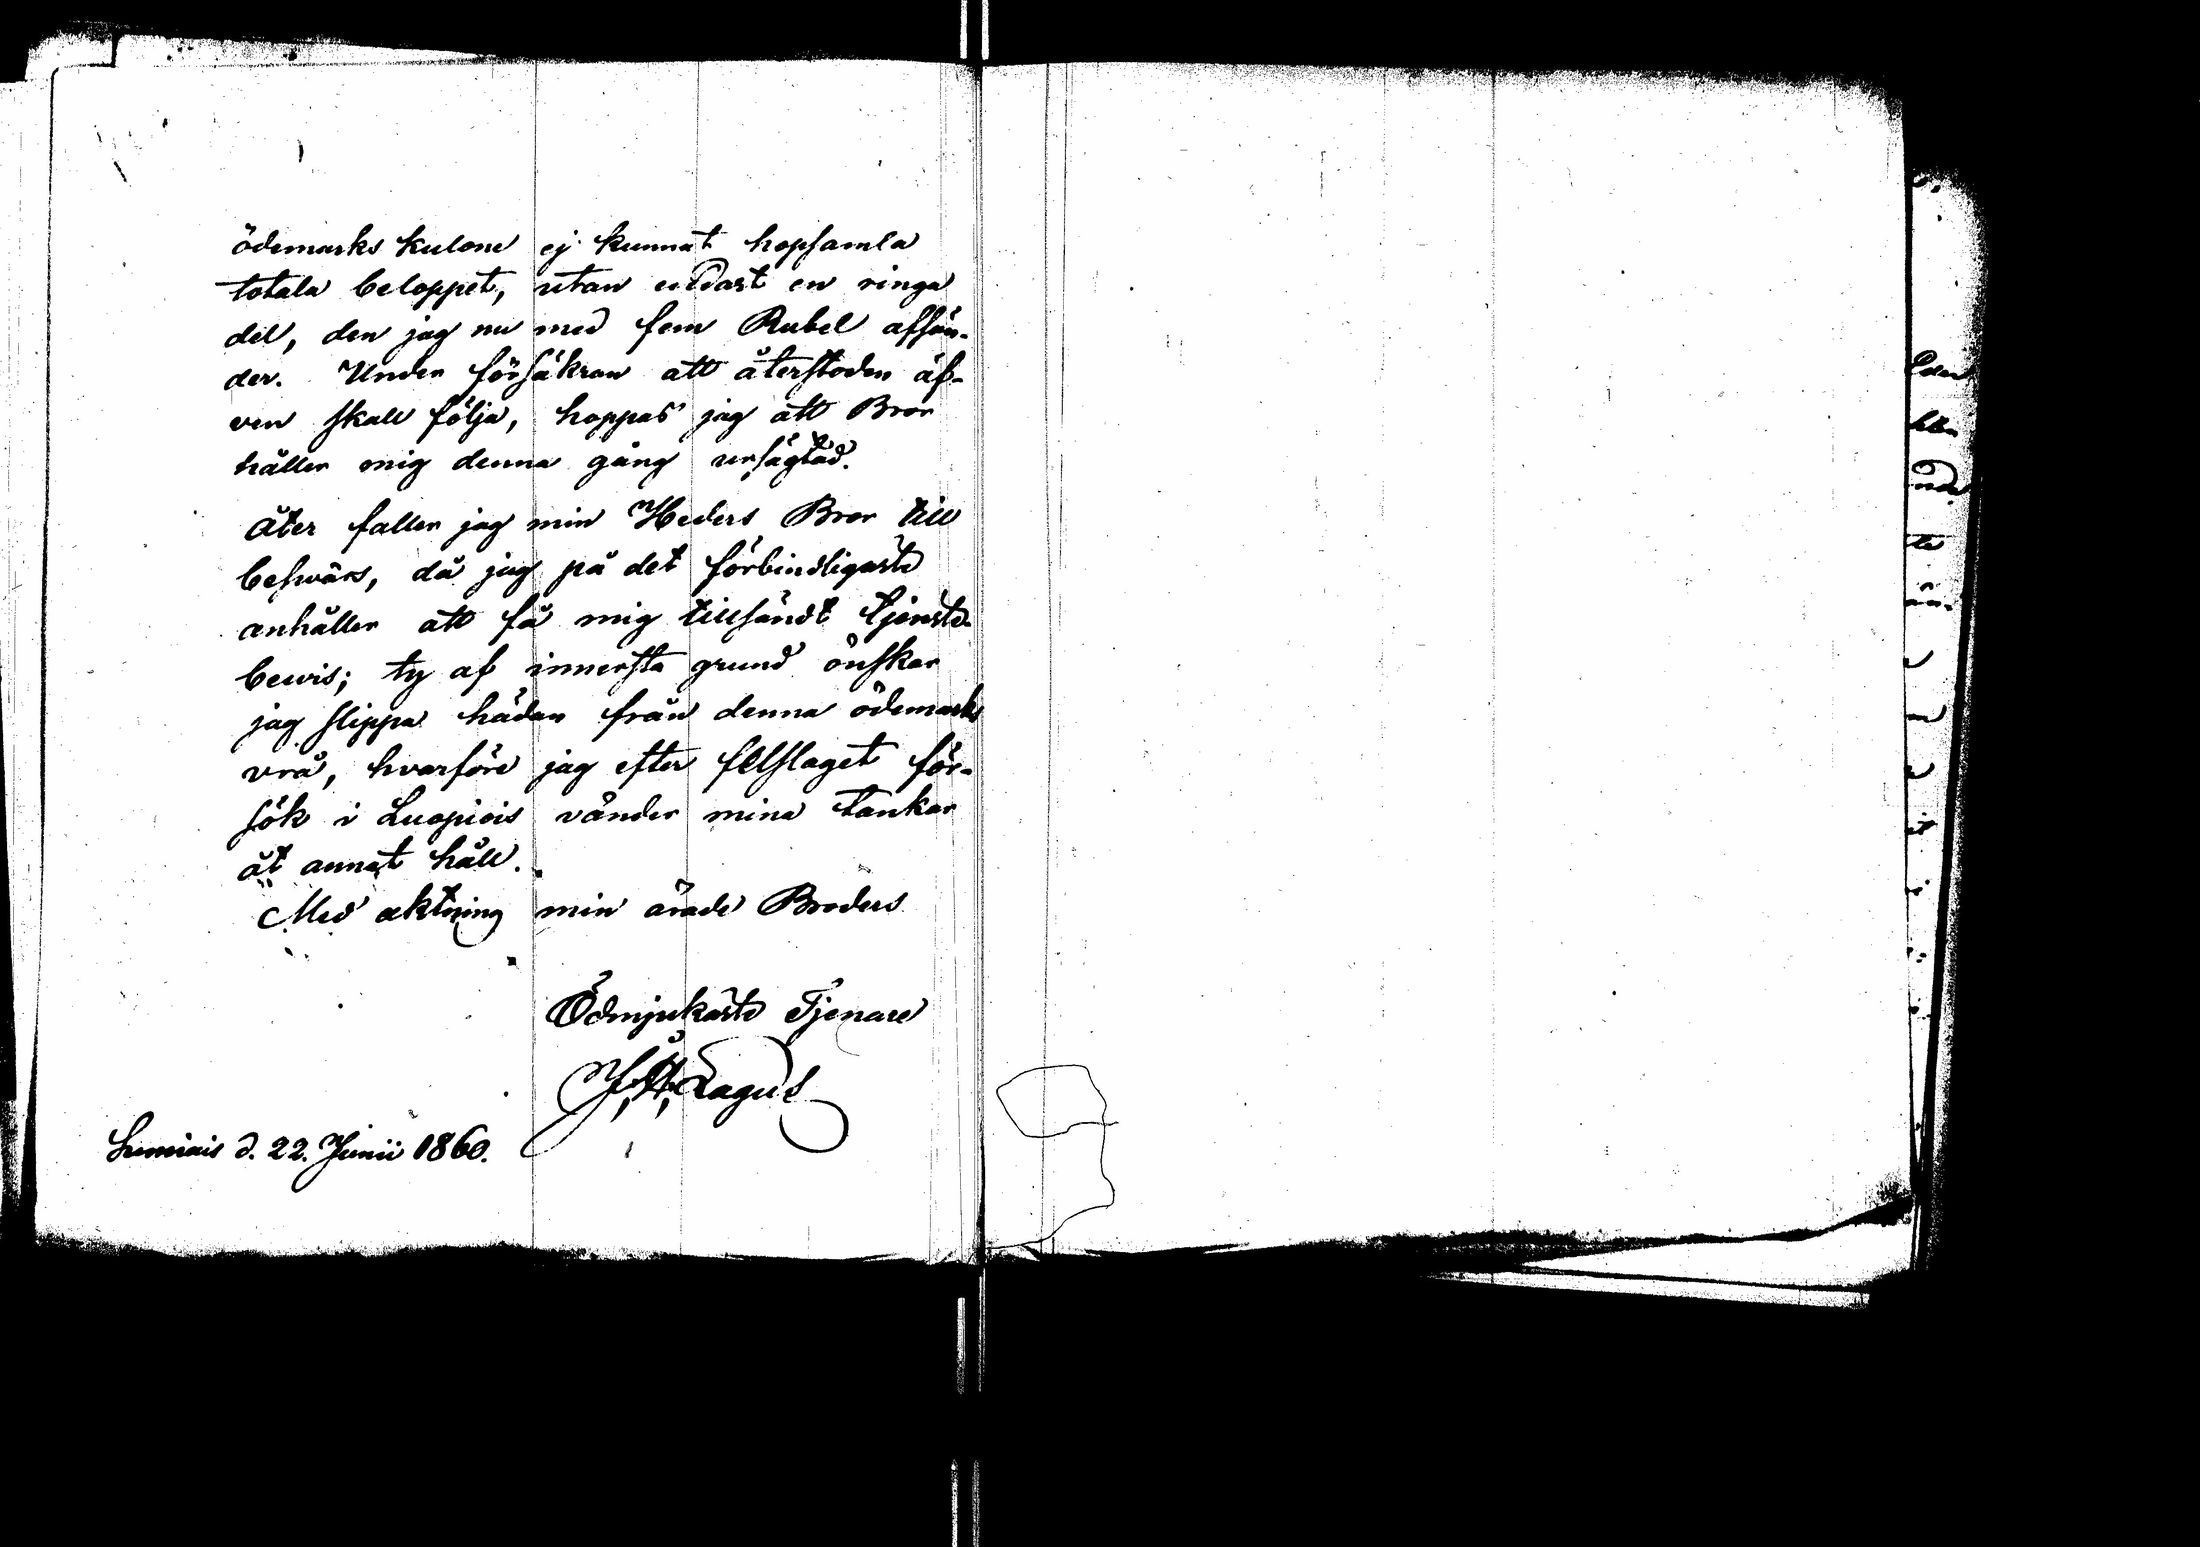 ödemarks kulone ej kunnat hopsamla
totala beloppet, utan endast en ringa
del, den jag nu med fem Rubel affän-
der. Under försäkran att återstoden äf-
ven skall följa, hoppas jag att Bror
håller mig denna gång ursägtad.
Åter faller jag min Heders Bror till
beswärs, då jag på det förbindligaste
anhåller att få mig tillsändt tjenste-
bewis; ty af innersta grund önskar
jag slippa hädan från denna ödemarks
vrå, hvarföre jag efter felslaget för-
sök i Luopiois vänder mina tankar
åt annat håll.
Med aktning min ärade Broders
Ödmjukaste Tjenare
Lagus
d. 22. Junii 1860.